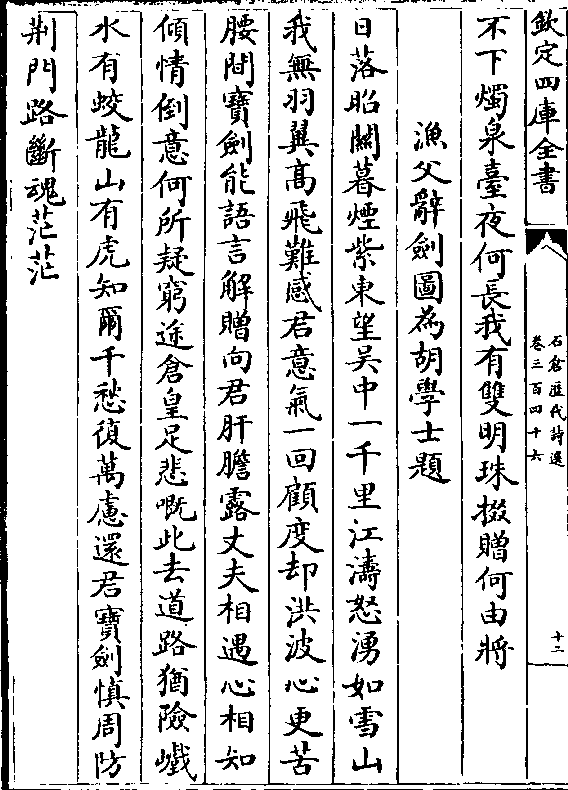 欽定四庫全書
石倉歷代詩選
卷三百四十六
十二
不下燭泉臺夜何長我有雙明珠掇贈何由將
漁父辭劍圖為胡學士題
日落昭關暮煙紫東望吳中一千里江濤怒湧如雪山
我無羽翼高飛難感君意氣一回顧度却洪波心更苦
腰間寶劍能語言解贈向君肝膽露丈夫相遇心相知
傾情倒意何所疑窮途倉皇足悲嘅此去道路猶險巇
水有蛟龍山有虎知爾千愁復萬慮還君寶劍慎周防
荆門路斷魂茫茫